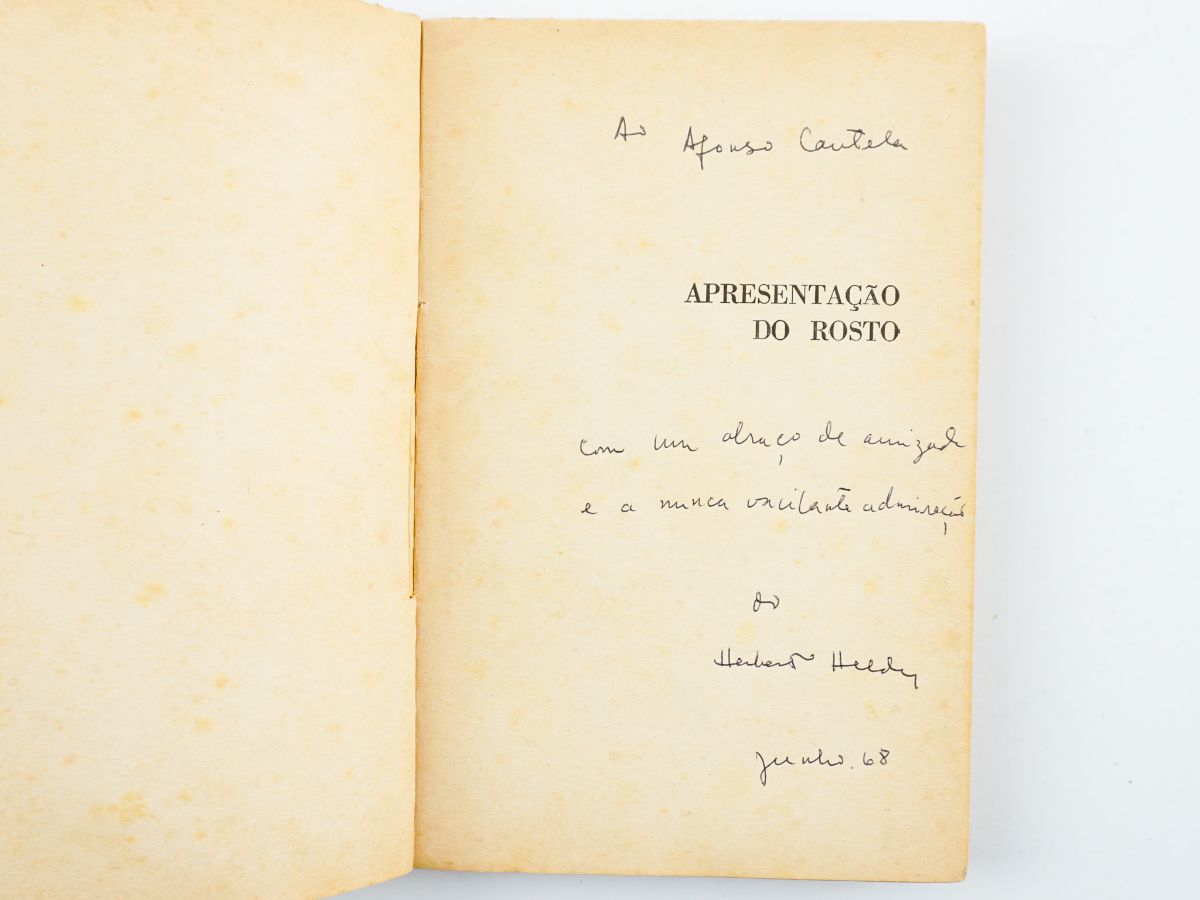 Ao Afonso Cautela
APRESENTAÇÃO
DO ROSTO
com um abraço de amizade
e a nunca vacilante admiração
do
Herberto Helder
Junho.68